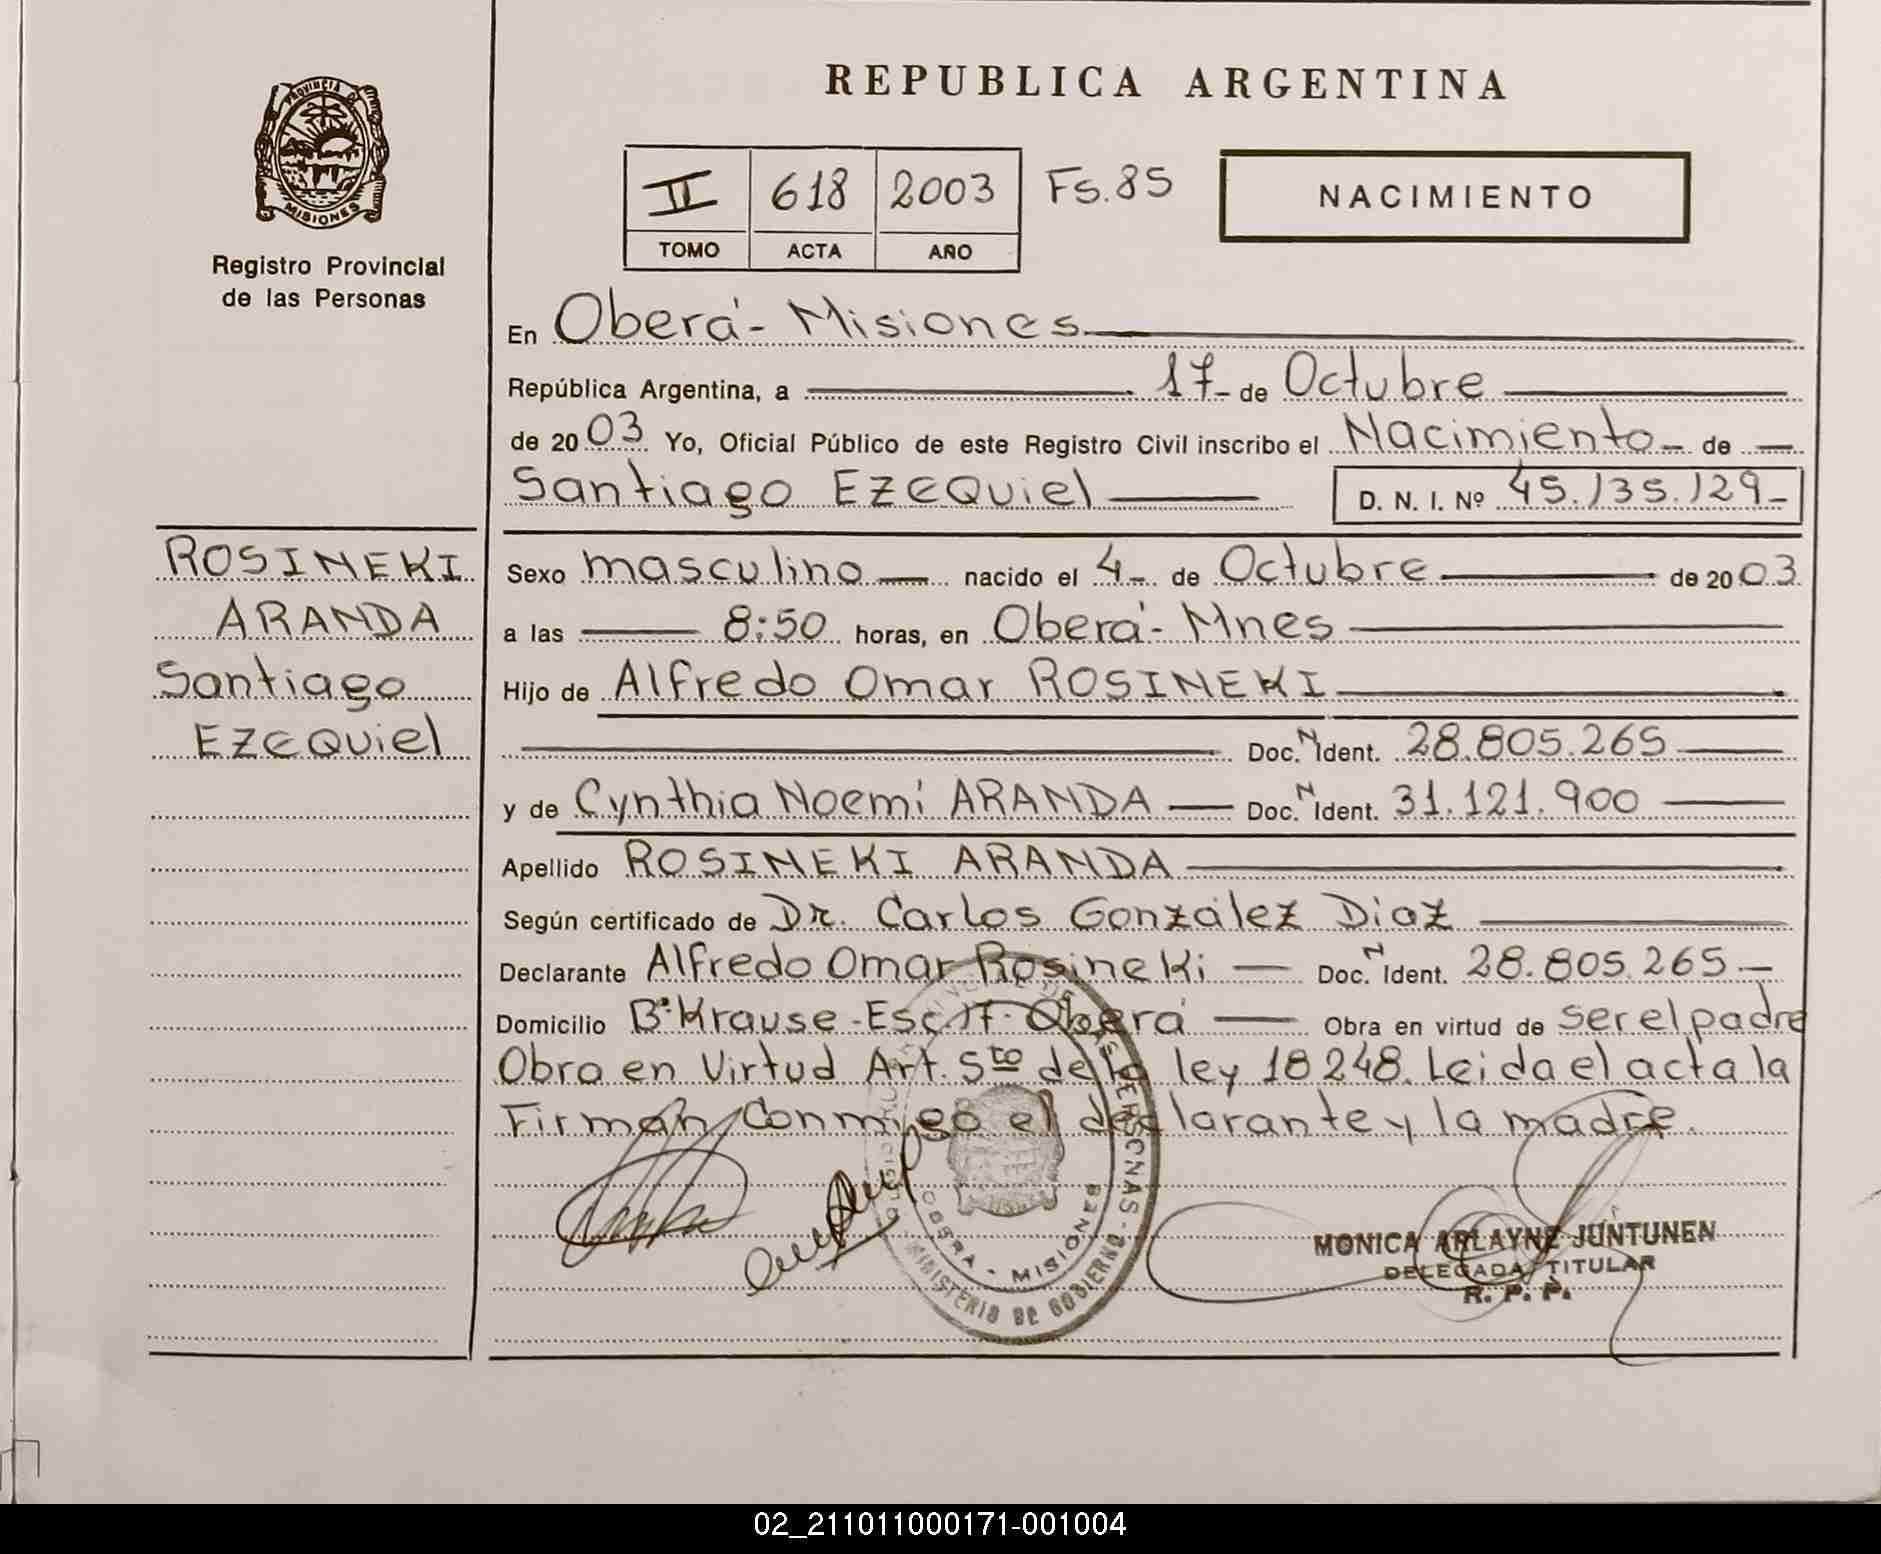 REPUBLICA ARGENTINA
PROVINCIA DE
MISIONES
Registro Provincial
de las Personas
II 618 2003 Fs. 85
TOMO ACTA AÑO
NACIMIENTO
En Oberá - Misiones
República Argentina, a 17 de Octubre
de 2003 Yo, Oficial Público de este Registro Civil inscribo el Nacimiento de
Santiago EZEQUiel D. N. I. Nº 45.135.129
ROSINEKI
ARANDA
Santiago
EZEQUiel
Sexo masculino nacido el 4 de Octubre de 2003
a las 8:50 horas, en Oberá - Mnes
Hijo de Alfredo Omar ROSINEKI
Doc. N Ident. 28.805.265
y de Cynthia Noemí ARANDA Doc. N Ident. 31.121.900
Apellido ROSINEKI ARANDA
Según certificado de Dr. Carlos González Diaz
Declarante Alfredo Omar Rosineki Doc. N Ident. 28.805.265
Domicilio Bº Krause - Esc 17 - Oberá Obra en virtud de ser el padre
Obra en Virtud Art. 5to de la ley 18248. Leida el acta la
Firman Conmigo el declarante y la madre.
OBERA - MISIONES
MINISTERIO DE GOBIERNO
MONICA ARLAYNE JUNTUNEN
DELEGADA TITULAR
R. P. P.
02_211011000171-001004